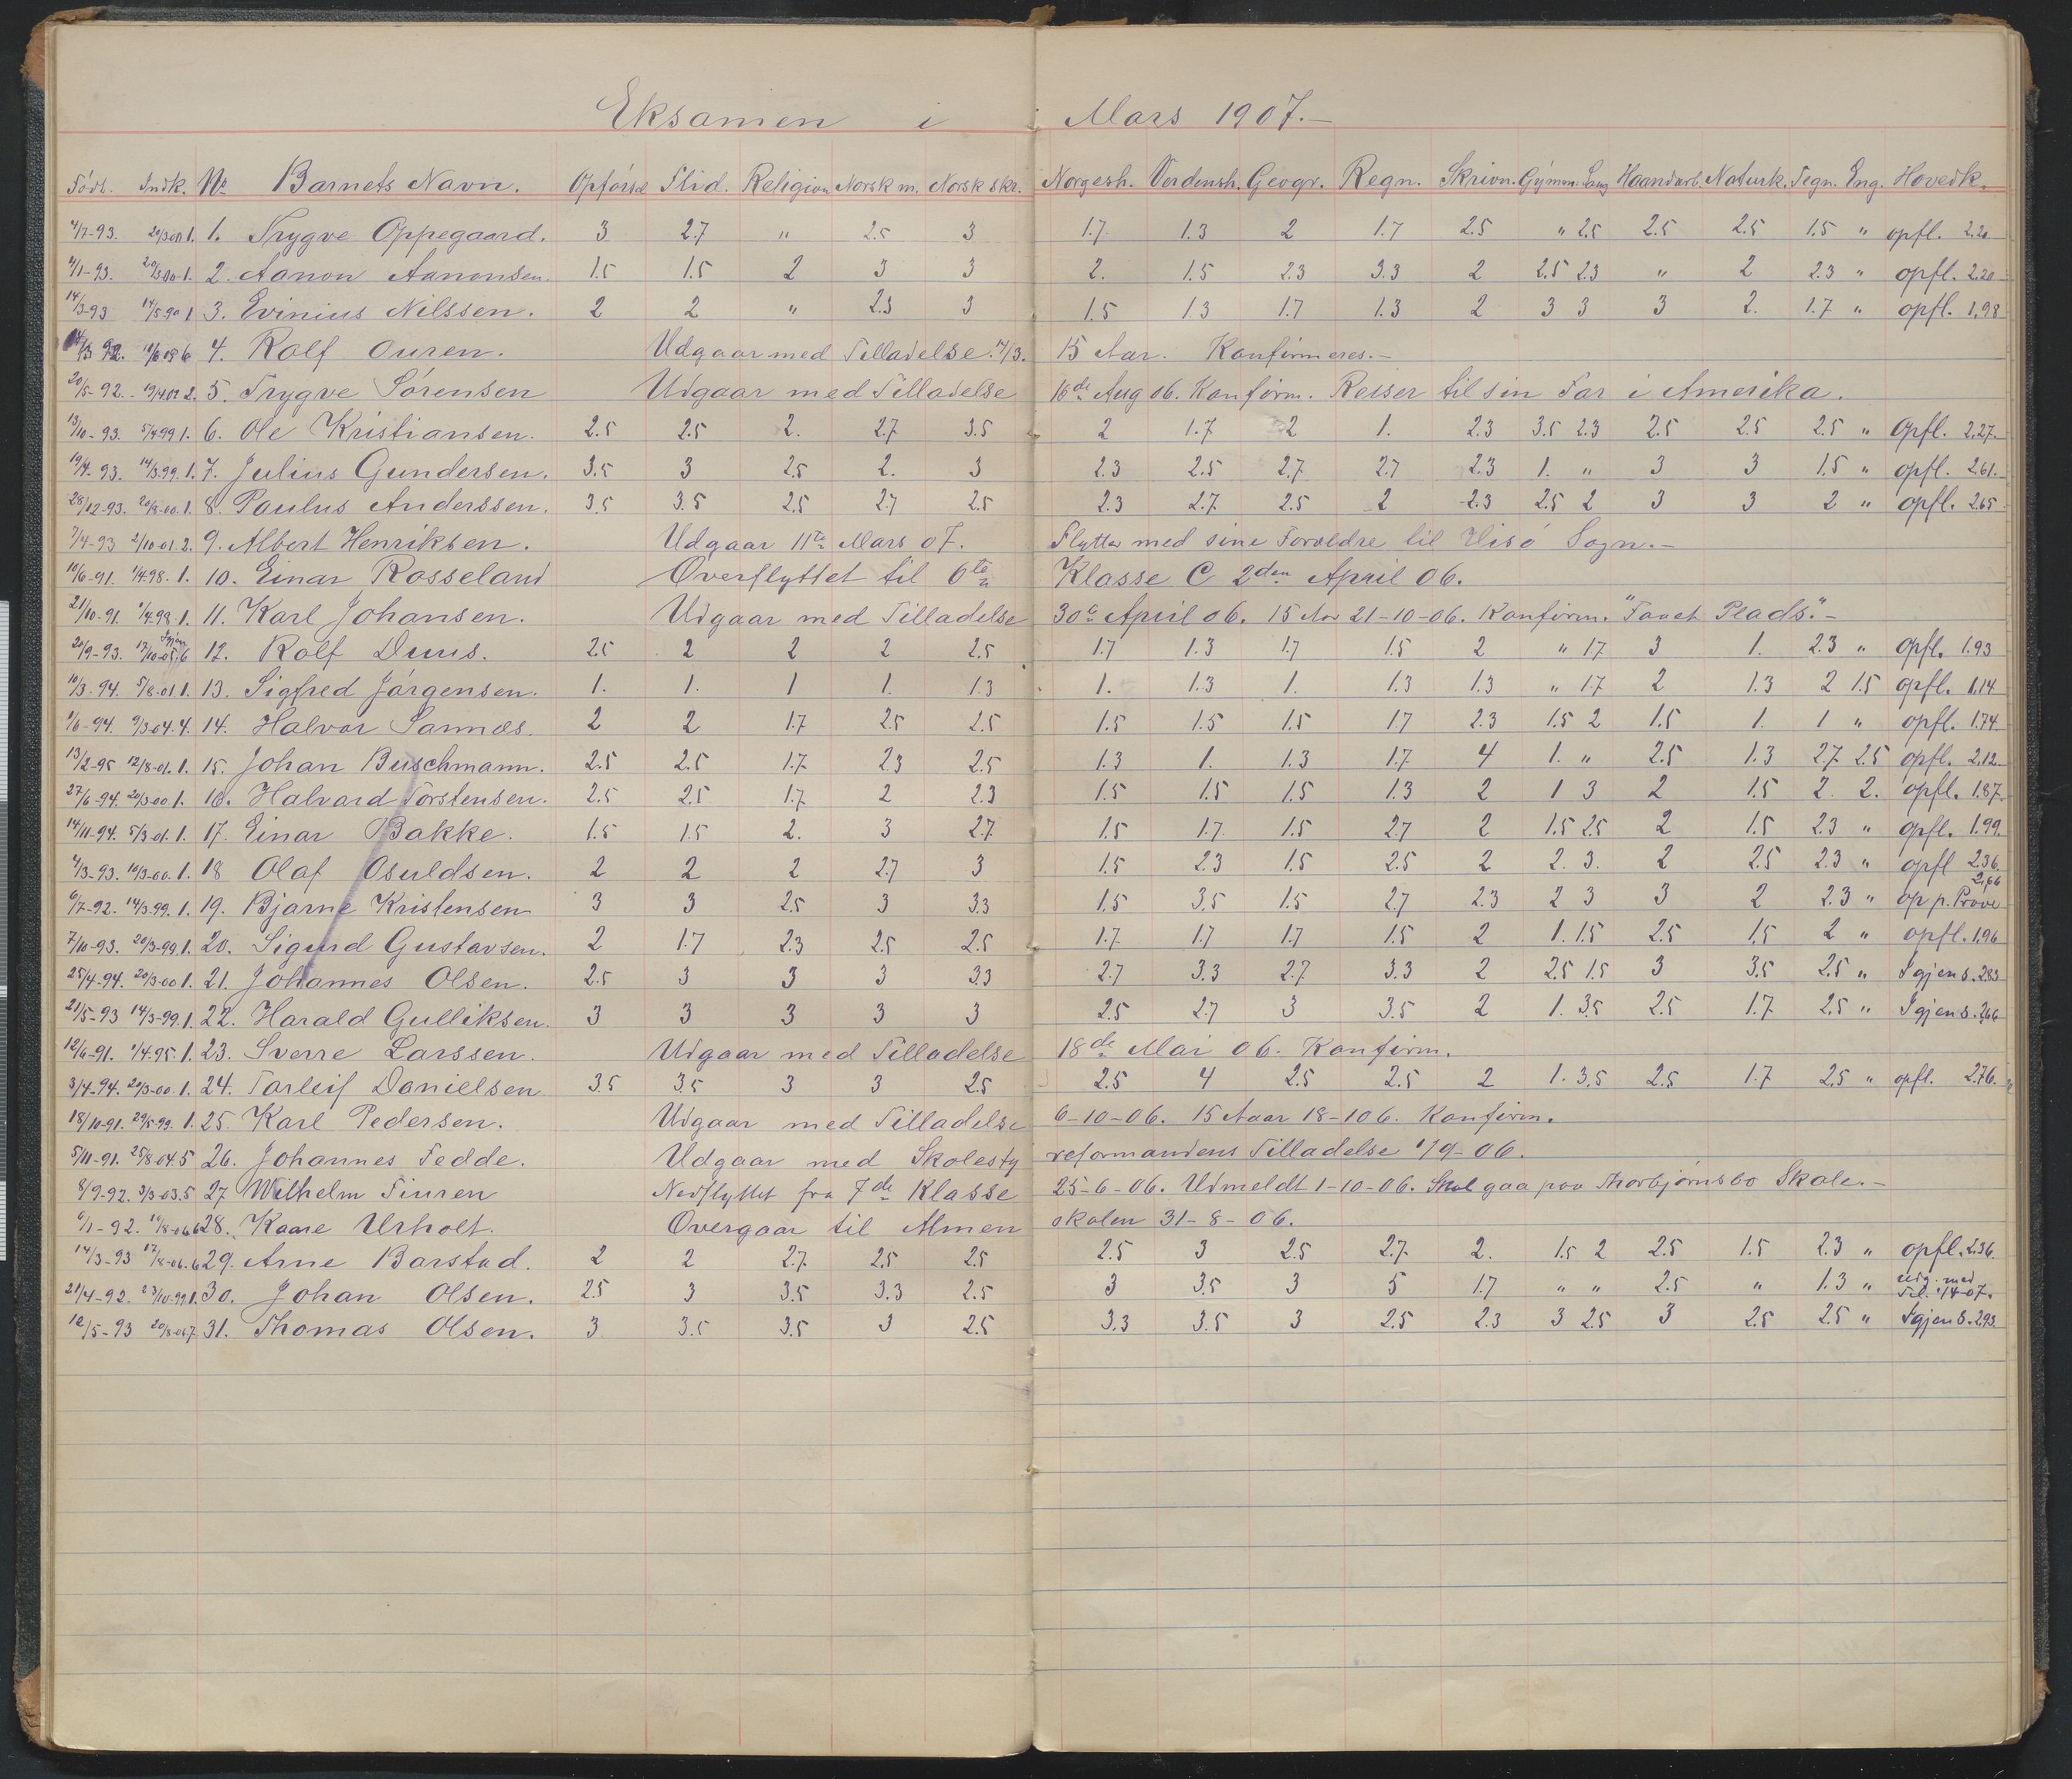 Eksamen i Mars 1907.—
Født. Indk. No Barnets Navn. Opførsel Flid. Religion Norsk m. Norsk skr. Norgesh. Verdensh. Geogr. Regn. Skrivn. Gymn. Sang Haandarb. Naturk. Tegn. Eng. Hovedk.
4/7-93. 20/3-00 1. 1. Trygve Oppegaard. 3 2.7 " 2.5 3 1.7 1.3 2 1.7 2.5 " 2.5 2.5 2.5 1.5 " opfl. 2.20
4/1-93. 20/3-00. 1. 2. Aanon Aanonsen. 1.5 1.5 2 3 3 2. 1.5 2.3 3.3 2 2.5 2.3 " 2 2.3 " opfl. 2.20
14/3-93 14/5-90 1 3. Evinius Nilssen. 2 2 " 2.3 3 1.5 1.3 1.7 1.3 2 3 3 3 2. 1.7 " opfl. 1.98
92. 6 4. Rolf Ouren. Udgaar med Tilladelse. 15 Aar. Konfirmeres.—
20/5-92. 19/4.02 2. 5. Trygve Sørensen Udgaar med Tilladelse 16de Aug 06. Konfirm. Reiser til sin Far i Amerika.
13/10-93. 5/4 99 1. 6. Ole Kristiansen. 2.5 2.5 2. 2.7 3.5 2 1.7 2 1. 2.3 3.5 2.3 2.5 2.5 2.5 " Opfl. 2.27.
19/4-93. 14/3.99. 1. 7. Julius Gundersen. 3.5 3 2.5 2. 3 2.3 2.5 2.7 2.7 2.3 1. " 3 3 1.5 " opfl. 2.61.
28/12-93. 20/8-00. 1. 8. Paulus Anderssen. 3.5 3.5 2.5 2.7 2.5 2.3 2.7 2.5 2 2.3 2.5 2 3 3 2 " opfl. 2.65
7/4-93 2/10-01. 2. 9. Albert Henriksen. Udgaar 11te Mars 07. Flytter med sine Forældre til Hisø Sogn.—
10/6-91. 1/4.98. 1. 10. Einar Rosseland Overflyttet til 6te Klasse C 2den April 06.
21/10-91. 1/4.98. 1. 11. Karl Johansen. Udgaar med Tilladelse 30te April 06. 15 Aar 21-10-06. Konfirm. "Faaet Plads."—
20/9-93. 17/10-05. 6 12. Rolf Duus. 2.5 2 2 2 2.5 1.7 1.3 1.7 1.5 2 " 1.7 3 1. 2.3 " opfl. 1.93
10/3-94. 5/8.01 1. 13. Sigfred Jørgensen. 1. 1. 1 1. 1.3 1. 1.3 1. 1.3 1.3 " 1.7 2 1.3 2 1.5 opfl. 1.14
1/6-94. 9/3.04. 4. 14. Halvor Sannæs. 2 2 1.7 2.5 2.5 1.5 1.5 1.5 1.7 2.3 1.5 2 1.5 1. 1 " opfl. 1.74.
13/2-95 12/8-01. 1. 15. Johan Buschmann. 2.5 2.5 1.7 2.3 2.5 1.3 1. 1.3 1.7 4 1. " 2.5 1.3 2.7 2.5 opfl. 2.12
27/6-94. 20/3-00. 1. 16. Halvard Torstensen. 2.5 2.5 1.7 2 2.3 1.5 1.5 1.5 1.3 2 1 3 2 1.5 2. 2. opfl. 1.87
14/11-94. 5/3-01. 1. 17. Einar Bakke. 1.5 1.5 2. 3 2.7 1.5 1.7 1.5 2.7 2 1.5 2.5 2 1.5 2.3 " opfl. 1.99.
4/3-93. 10/3-00. 1. 18 Olaf Osuldsen. 2 2 2 2.7 3 1.5 2.3 1.5 2.5 2 2. 3. 2 2.5 2.3 " opfl 2.36.
6/7-92. 14/3.99. 1. 19. Bjarne Kristensen 3 3 2.5 3 3.3 1.5 3.5 1.5 2.7 2.3 2 3 3 2 2.3 " op p. Prøve 2.66
7/10-93. 20/3-99 1. 20. Sigurd Gustavsen. 2 1.7 2.3 2.5 2.5 1.7 1.7 1.7 1.5 2 1. 1.5 2.5 1.5 2 " opfl. 1.96
25/4-94. 20/3-00 1. 21. Johannes Olsen. 2.5 3 3 3 3.3 2.7 3.3 2.7 3.3 2 2.5 1.5 3 3.5 2.5 " Igjen s. 2.83
21/5-93 14/3-99. 1. 22. Harald Gulliksen. 3 3 3 3 3 2.5 2.7 3 3.5 2 1. 3.5 2.5 1.7 2.5 " Igjen s. 2.66
12/6-91. 1/4.95. 1. 23. Sverre Larssen. Udgaar med Tilladelse 18de Mai 06. Konfirm.
3/4-94. 20/3-00. 1. 24. Torleif Danielsen 3.5 3.5 3 3 2.5 2.5 4 2.5 2.5 2 1. 3.5 2.5 1.7 2.5 " opfl. 2.76.
18/10-91. 29/5-99. 1. 25. Karl Pedersen. Udgaar med Tilladelse 6-10-06. 15 Aaar 18-106. Konfirm.
5/11-91. 25/8.04. 5 26. Johannes Fedde. Udgaar med Skolesty reformandens Tilladelse 1/9-06.
8/9-92. 3/3-03. 5 27 Wilhelm Tiuren Nedflyttet fra 7de Klasse 25-6-06. Udmeldt 1-10-06. Skal gaa paa Thorbjørnsbo Skole.—
6/1-92. 6 28. Kaare Urholt. Overgaar til Almen skolen 31-8-06.
14/3-93 17/8-06. 6 29. Arne Barstad. 2 2 2.7 2.5 2.5 2.5 3 2.5 2.7 2. 1.5 2 2.5 1.5 2.3 " opfl. 2.36.
21/4-92. 23/10-99 1. 30. Johan Olsen. 2.5 3 3.5 3.3 2.5 3 3.5 3 5 1.7 " " 2.5 " 1.3 " udg. med Til. 1/4-07.
12/5-93 20/8-06 7 31. Thomas Olsen. 3 3.5 3.5 3 2.5 3.3 3.5 3 2.5 2.3 3 2.5 3 2.5 2.5 " Igjen s. 2.93.